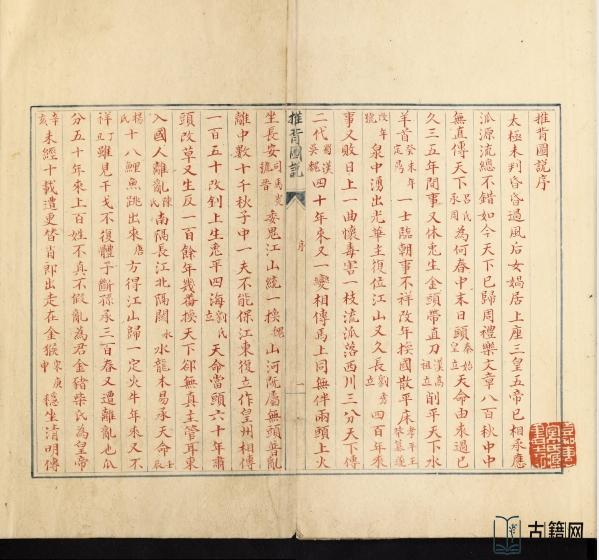 推背圖說序
太極未判昏昏過風后女媧居上座三皇五帝已相承應
派源流總不錯如今天下已歸周禮樂文章八百秋中中
無直傳天下呂氏承周為何春中末日頭秦始皇立天命由來過已
久三五年間事又休兎生金頭帶直刀漢高祖立削平天下水
羊首癸未年定為一士臨朝事不祥改年換國散平床孝平王莽篡
改年號泉中湧出光華主復位江山又久長劉秀立四百年來
事又敗日上一曲懷毒害一枝流派落西川三分天下傳
二代蜀漢吳魏四十年來又一變相傳馬上同無伴兩頭上火
坐長安司馬炎號晉委鬼江山統一換魏山河既屬無頭普亂
離中數十千秋子中一夫不能保江東復立作皇州相傳
一百五十改刻上生兎平四海劉氏立天命當頭六十年肅
頭改草又生反一百餘年幾番換天下卻無真主管耳東
入國人離亂陳氏南隔長江北隔關水龍木易承天命壬辰
楊氏十八鯉魚跳出來唐方得江山歸一定火牛年來又不
祥丁丑雖見干戈不復體子斷孫承三百春又遭離亂也瓜
分五十年來上百姓不真不假亂為君金豬柴氏為皇帝
辛亥未經十載遭更替肖郎出走在金猴宋庚申穩坐清明傳
推背圖說
序
一
古籍网